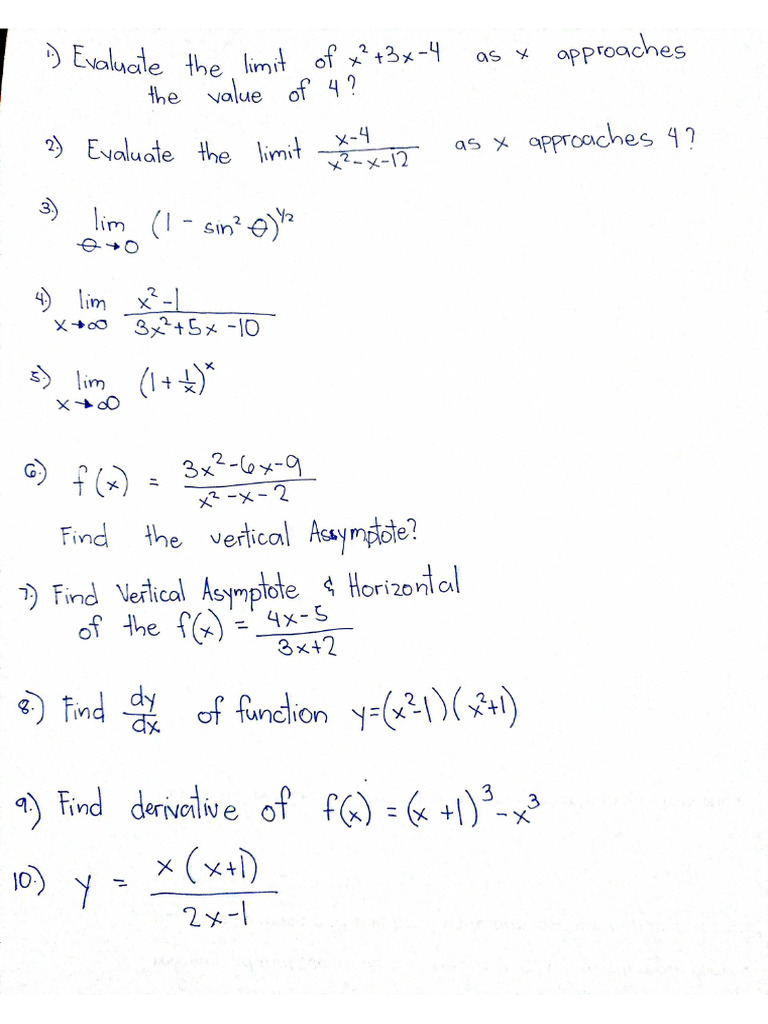 1.) Evaluate the limit of x²+3x-4 as x approaches
the value of 4?
2.) Evaluate the limit (x-4)/(x²-x-12) as x approaches 4?
3.) lim θ→0 (1 - sin² θ)^(1/2)
4.) lim x→∞ (x²-1)/(3x²+5x-10)
5.) lim x→∞ (1 + 1/x)^x
6.) f(x) = (3x²-6x-9)/(x²-x-2)
Find the vertical Assymptote?
7.) Find Vertical Asymptote & Horizontal
of the f(x) = (4x-5)/(3x+2)
8.) Find dy/dx of function y=(x²-1)(x²+1)
9.) Find derivative of f(x) = (x+1)³-x³
10.) y = x(x+1)/(2x-1)